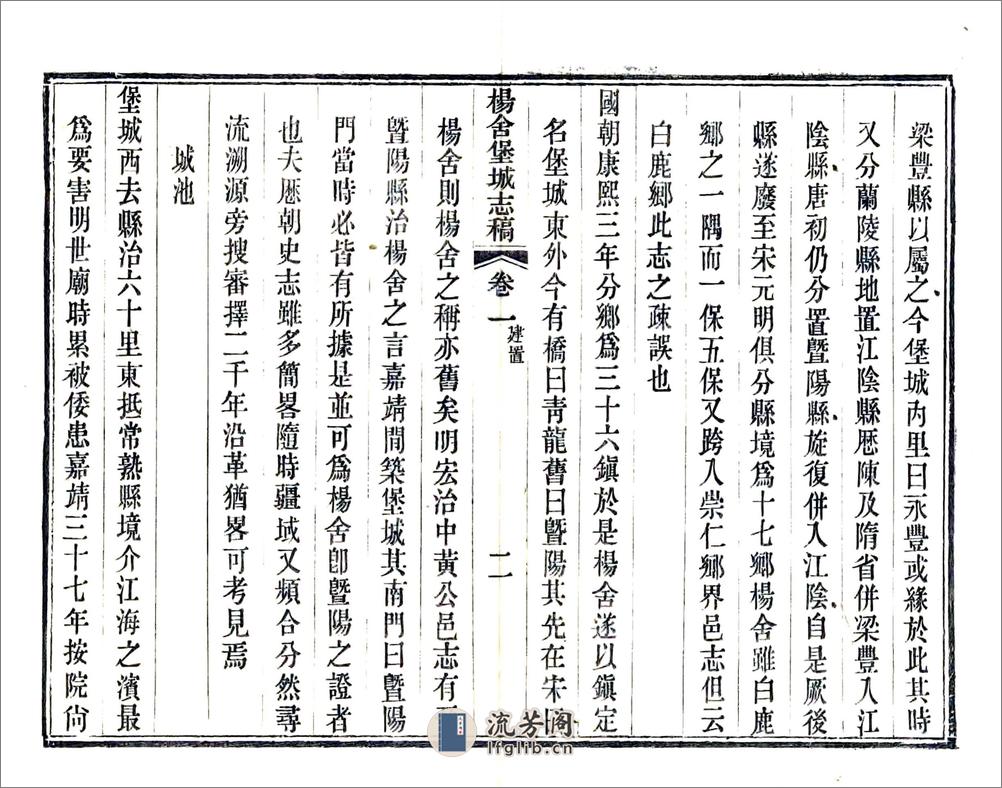 梁豐縣以屬之今堡城內里曰永豐或緣於此其時
又分蘭陵縣地置江陰縣歷陳及隋省併梁豐入江
陰縣唐初仍分置暨陽縣旋復併入江陰自是厥後
縣遂廢至宋元明俱分縣境爲十七鄉楊舍雖白鹿
鄉之一隅而一保五保又跨入崇仁鄉界邑志但云
白鹿鄉此志之疎誤也
國朝康熙三年分鄉爲三十六鎭於是楊舍遂以鎭定
名堡城東外今有橋曰靑龍舊曰暨陽其先在宋
楊舍堡城志稿 卷一 建置 二
楊舍則楊舍之稱亦舊矣明宏治中黃公邑志有
暨陽縣治楊舍之言嘉靖間築堡城其南門曰暨陽
門當時必皆有所據是並可爲楊舍卽暨陽之證者
也夫歷朝史志雖多簡畧隨時疆域又頻合分然尋
流溯源旁搜審擇二千年沿革猶畧可考見焉
城池
堡城西去縣治六十里東抵常熟縣境介江海之濱最
爲要害明世廟時累被倭患嘉靖三十七年按院尙
流芳阁
lfglib.cn